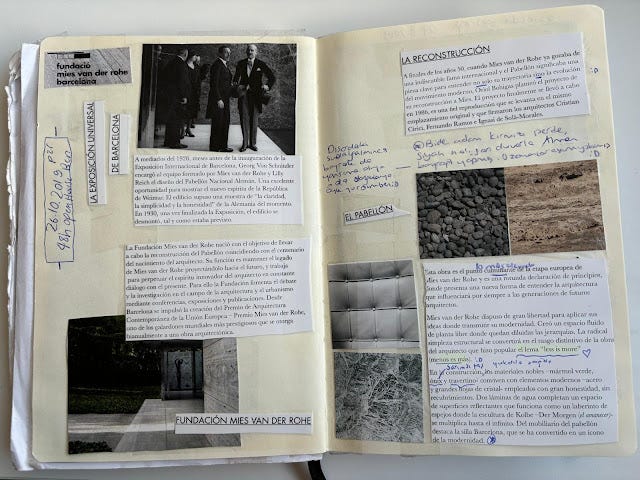 fundació
mies van der rohe
barcelona
LA EXPOSICIÓN UNIVERSAL
DE BARCELONA
A mediados del 1928, meses antes de la inauguración de la
Exposición Internacional de Barcelona, Georg Von Schnitzler
encargó al equipo formado por Mies van der Rohe y Lilly
Reich el diseño del Pabellón Nacional Alemán. Una excelente
oportunidad para mostrar el nuevo espíritu de la República
de Weimar. El edificio supuso una muestra de "la claridad,
la simplicidad y la honestidad" de la Alemania del momento.
En 1930, una vez finalizada la Exposición, el edificio se
desmontó, tal y como estaba previsto.
La Fundación Mies van der Rohe nació con el objetivo de llevar
a cabo la reconstrucción del Pabellón coincidiendo con el centenario
del nacimiento del arquitecto. Su función es mantener el legado
de Mies van der Rohe proyectándolo hacia el futuro, y trabaja
para perpetuar el espíritu innovador del arquitecto en constante
diálogo con el presente. Para ello la Fundación fomenta el debate
y la investigación en el campo de la arquitectura y el urbanismo
mediante conferencias, exposiciones y publicaciones. Desde
Barcelona se impulsó la creación del Premio de Arquitectura
Contemporánea de la Unión Europea – Premio Mies van der Rohe,
uno de los galardones mundiales más prestigiosos que se otorga
bianualmente a una obra arquitectónica.
FUNDACIÓN MIES VAN DER ROHE
LA RECONSTRUCCIÓN
A finales de los años 50, cuando Mies van der Rohe ya gozaba de
una indiscutible fama internacional y el Pabellón significaba una
pieza clave para entender no solo su trayectoria sino la evolución
del movimiento moderno, Oriol Bohigas planteó por primera vez
su reconstrucción a Mies. El proyecto finalmente se llevó a cabo
en 1986, es una fiel reproducción que se levanta en el mismo
emplazamiento original y que firmaron los arquitectos Cristian
Cirici, Fernando Ramos e Ignasi de Solà-Morales.
EL PABELLÓN
Esta obra es el punto culminante de la etapa europea de
Mies van der Rohe y es una rotunda declaración de principios,
donde presenta una nueva forma de entender la arquitectura
que influenciará por siempre a las generaciones de futuros
arquitectos.
Mies van der Rohe dispuso de gran libertad para aplicar sus
ideas donde transmitir su modernidad. Creó un espacio fluido
de planta libre donde quedan diluidas las jerarquías. La radical
simpleza estructural se convertirá en el rasgo distintivo de la obra
del arquitecto que hizo popular el lema "less is more"
(menos es más).
En su construcción, los materiales nobles –mármol verde,
ónix y travertino– conviven con elementos modernos –acero
y grandes hojas de cristal– empleados con gran honestidad, sin
recubrimientos. Dos láminas de agua completan un espacio
de superficies reflectantes que funciona como un laberinto de
espejos donde la escultura de Kolbe –Der Morgen (el amanecer)–
se multiplica hasta el infinito. Del mobiliario del pabellón
destaca la silla Barcelona, que se ha convertido en un icono
de la modernidad.